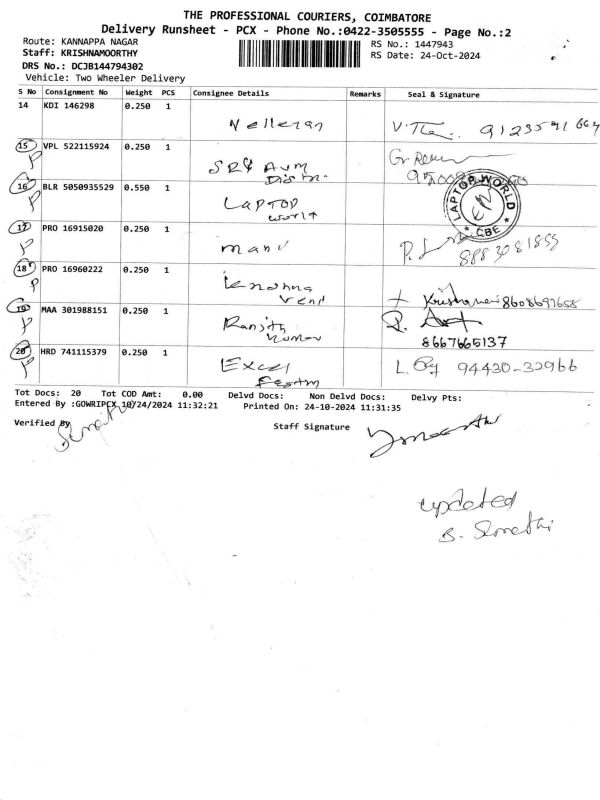 THE PROFESSIONAL COURIERS, COIMBATORE
Delivery Runsheet - PCX - Phone No.:0422-3505555 - Page No.:2
Route: KANNAPPA NAGAR
RS No.: 1447943
Staff: KRISHNAMOORTHY
RS Date: 24-Oct-2024
DRS No.: DCJB144794302
Vehicle: Two Wheeler Delivery
S No Consignment No Weight PCS Consignee Details Remarks Seal & Signature
14 KDI 146298 0.250 1
15 VPL 522115924 0.250 1
P
16 BLR 5050935529 0.550 1
P
LAPTOP
World
LAPTOP WORLD
CBE
17 PRO 16915020 0.250 1
P
manu
18 PRO 16960222 0.250 1
P
8608697658
19 MAA 301988151 0.250 1
P
Ranjith
8667665137
20 HRD 741115379 0.250 1
P
Excel
94430-32966
Tot Docs: 20 Tot COD Amt: 0.00 Delvd Docs: Non Delvd Docs: Delvy Pts:
Entered By :GOWRIPCX 10/24/2024 11:32:21 Printed On: 24-10-2024 11:31:35
Verified By
Staff Signature
updated